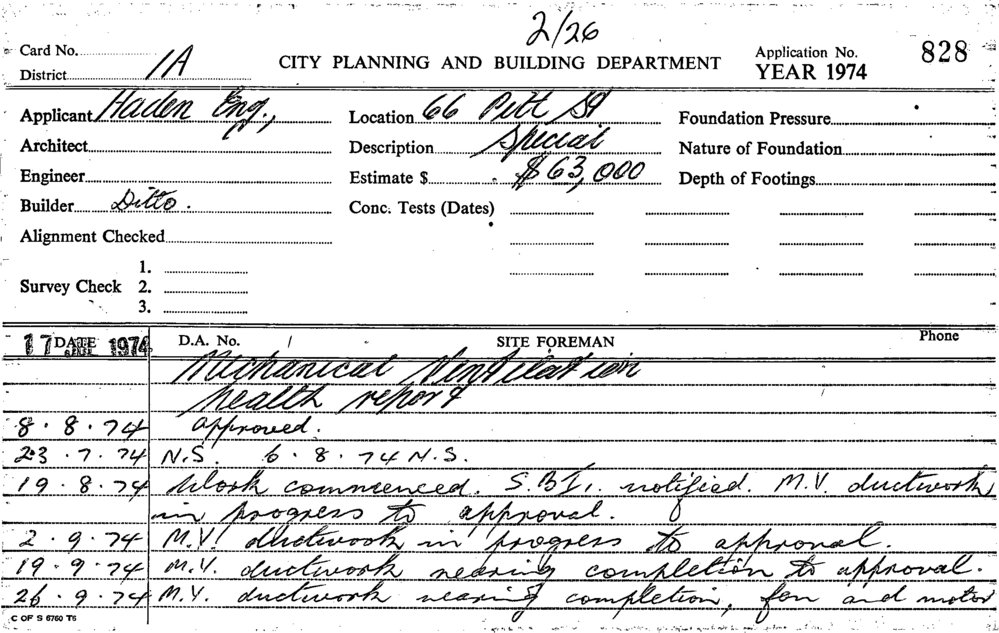 2/26
Card No. Application No. 828
District 1A CITY PLANNING AND BUILDING DEPARTMENT YEAR 1974
Applicant Haden Eng., Location 66 Pitt St Foundation Pressure
Architect Description Special Nature of Foundation
Engineer Estimate $ $63,000 Depth of Footings
Builder Ditto. Conc. Tests (Dates)
Alignment Checked
1.
Survey Check 2.
3.
17 DATE 1974 D.A. No. SITE FOREMAN Phone
Mechanical Ventilation
health report
8.8.74 approved.
23.7.74 N.S. 6.8.74 N.S.
19.8.74 Work commenced. S.B.I. notified. M.V. ductwork
in progress to approval.
2.9.74 M.V. ductwork in progress to approval.
19.9.74 M.V. ductwork nearing completion to approval.
26.9.74 M.V. ductwork nearing completion, fan and motor
C OF S 6760 T6